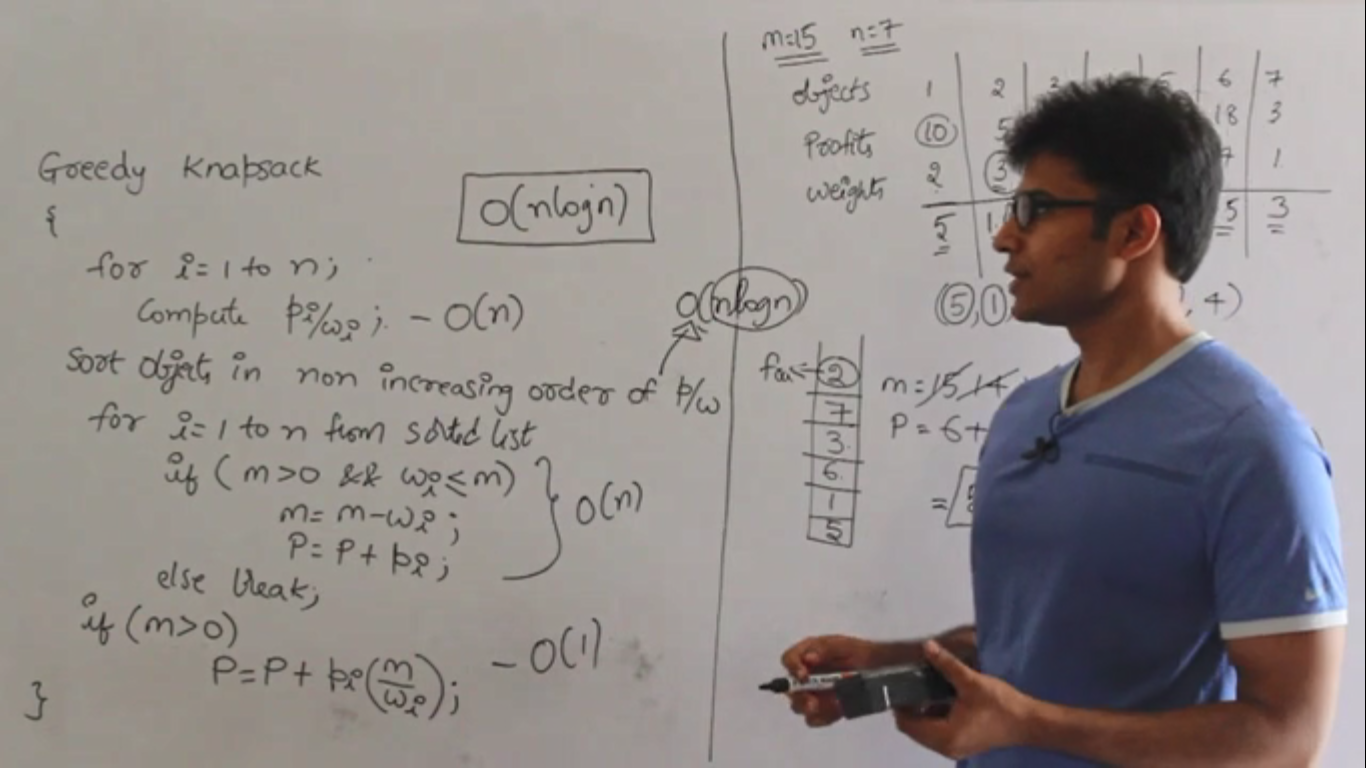 Greedy Knapsack
{
for i=1 to n;
Compute pi/wi; - O(n)
Sort objects in non increasing order of p/w
for i=1 to n from sorted list
if (m>0 && wi≤m)
m=m-wi;
P=P+pi;
else break;
if (m>0)
P=P+pi(m/wi);
}
O(n)
- O(1)
O(nlogn)
O(nlogn)
m=15 n=7
objects 1 2 6 7
Profits 10 5 18 3
weights 2 3 1
5 1. 5 3
(5,1 , 4)
2
7
3
6
1
5
m=15 14
P=6+
=